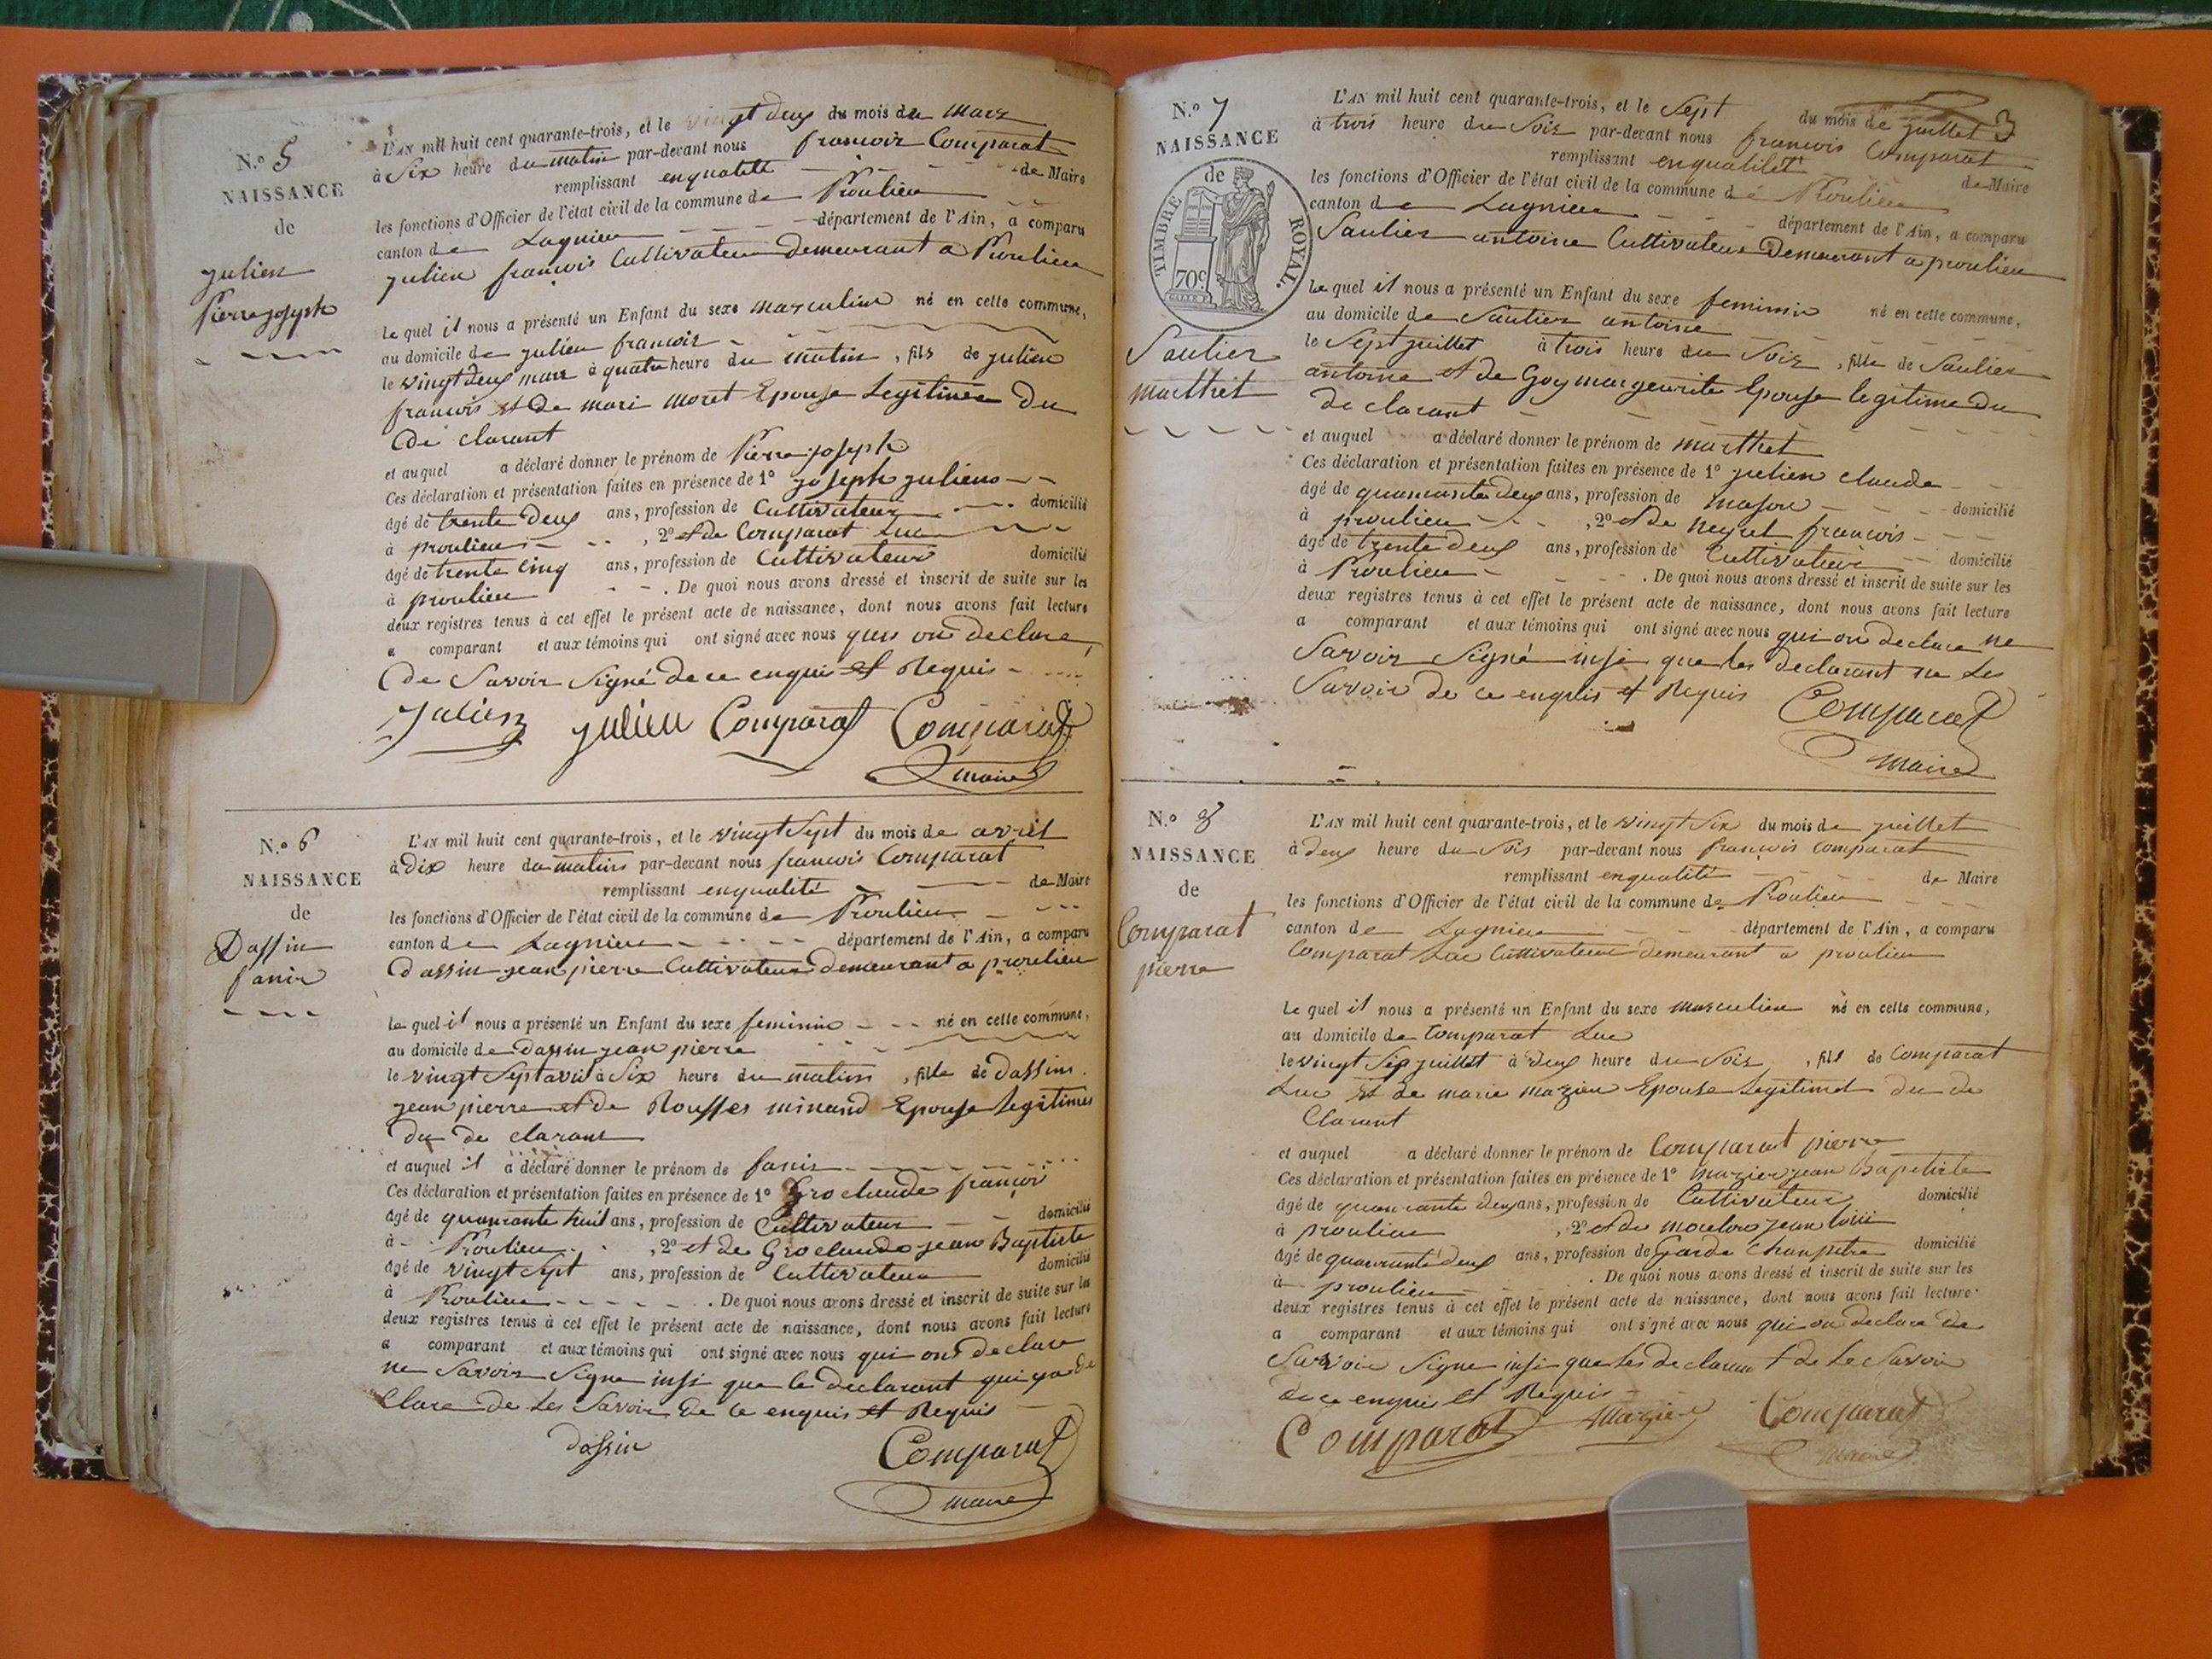 N.o 5
NAISSANCE
de
julien
Pierre joseph
L'AN mil huit cent quarante-trois, et le vingt deux du mois de mars
à Six heure du matin par-devant nous francois Comparat
remplissant enqualité de Maire
les fonctions d'Officier de l'état civil de la commune de Proulieu
canton de Lagnieu département de l'Ain, a comparu
julien francois Cultivateur demeurant a Proulieu
Le quel il nous a présenté un Enfant du sexe masculin né en cette commune,
au domicile de julien francois
le vingt deux mars à quatre heure du matin, fils de julien
francois et de mari moret Epouse Legitime du
de clarant
et auquel a déclaré donner le prénom de Pierre joseph
Ces déclaration et présentation faites en présence de 1o joseph julien
âgé de trente deux ans, profession de Cultivateur domicilié
à proulieu, 2o et de Comparat Luc
âgé de trente cinq ans, profession de Cultivateur domicilié
à proulieu. De quoi nous avons dressé et inscrit de suite sur les
deux registres tenus à cet effet le présent acte de naissance, dont nous avons fait lecture
a comparant et aux témoins qui ont signé avec nous declare
de Savoir Signé de ce enquis et Requis
Julien julieu Comparat Comparat
maire
N.o 6
NAISSANCE
de
Dassin
fanir
L'AN mil huit cent quarante-trois, et le vingt Sept du mois de avril
à dix heure du matin par-devant nous francois Comparat
remplissant enqualité de Maire
les fonctions d'Officier de l'état civil de la commune de Proulieu
canton de Lagnieu département de l'Ain, a comparu
dassin jean pierre Cultivateur demeurant a proulieu
Le quel il nous a présenté un Enfant du sexe feminin né en cette commune,
au domicile de dassin jean pierre
le vingt Sept avril à Six heure du matin, fille de dassin
jean pierre et de Epouse Legitime
du de clarant
et auquel il a déclaré donner le prénom de fanir
Ces déclaration et présentation faites en présence de 1o Groclaude françoi
âgé de quanrante huit ans, profession de Cultivateur domicilié
à Proulieu, 2o et de Groclaude jean Baptiste
âgé de vingt Sept ans, profession de Cultivateur domicilié
à Proulieu. De quoi nous avons dressé et inscrit de suite sur les
deux registres tenus à cet effet le présent acte de naissance, dont nous avons fait lecture
a comparant et aux témoins qui ont signé avec nous qui ont declare
ne Savoir Signe insi que le declarant qui a de
Clare de Les Savoir de ce enquis et Requis
dassin Comparat
maire
3
N.o 7
NAISSANCE
de
TIMBRE ROYAL
70c
Saulier
marthet
L'AN mil huit cent quarante-trois, et le Sept du mois de juillet
à trois heure du Soir par-devant nous francois Comparat
remplissant enqualitet de Maire
les fonctions d'Officier de l'état civil de la commune de Proulieu
canton de Lagnieu département de l'Ain, a comparu
Saulier antoine Cultivateur Demeurant a proulieu
Le quel il nous a présenté un Enfant du sexe feminin né en cette commune,
au domicile de Saulier antoine
le Sept juillet à trois heure du Soir, fille de Saulier
antoine et de Goy margeurite Epouse legitime du
de clarant
et auquel a déclaré donner le prénom de marthet
Ces déclaration et présentation faites en présence de 1o julien claude
âgé de quanrante deux ans, profession de mason domicilié
à proulieu, 2o et de neyret francois
âgé de trente deux ans, profession de Cultivateur domicilié
à Proulieu. De quoi nous avons dressé et inscrit de suite sur les
deux registres tenus à cet effet le présent acte de naissance, dont nous avons fait lecture
a comparant et aux témoins qui ont signé avec nous qui on declare ne
Savoir Signé insi que les declarant ne Les
Savoir de ce enquis et Requis Comparat
maire
N.o 8
NAISSANCE
de
Comparat
pierre
L'AN mil huit cent quarante-trois, et le vingt Six du mois de juillet
à deux heure du Soir par-devant nous françois Comparat
remplissant enqualité de Maire
les fonctions d'Officier de l'état civil de la commune de Proulieu
canton de Lagnieu département de l'Ain, a comparu
Comparat Luc Cultivateur demeurant a proulieu
Le quel il nous a présenté un Enfant du sexe masculin né en cette commune,
au domicile de Comparat Luc
le vingt Six juillet à deux heure du Soir, fils de Comparat
Luc et de marie mazieu Epouse Legitimet du de
Clarant
et auquel a déclaré donner le prénom de Comparat pierre
Ces déclaration et présentation faites en présence de 1o mazier jean Baptiste
âgé de quanrante deux ans, profession de Cultivateur domicilié
à proulieu, 2o et de jean
âgé de quanrante deux ans, profession de Garde Champetre domicilié
à proulieu. De quoi nous avons dressé et inscrit de suite sur les
deux registres tenus à cet effet le présent acte de naissance, dont nous avons fait lecture
a comparant et aux témoins qui ont signé avec nous qui on declare de
Savoir Signe insi que Les declarant de Le Savoir
de ce enquis et Requis
Comparat Mazier Comparat
maire